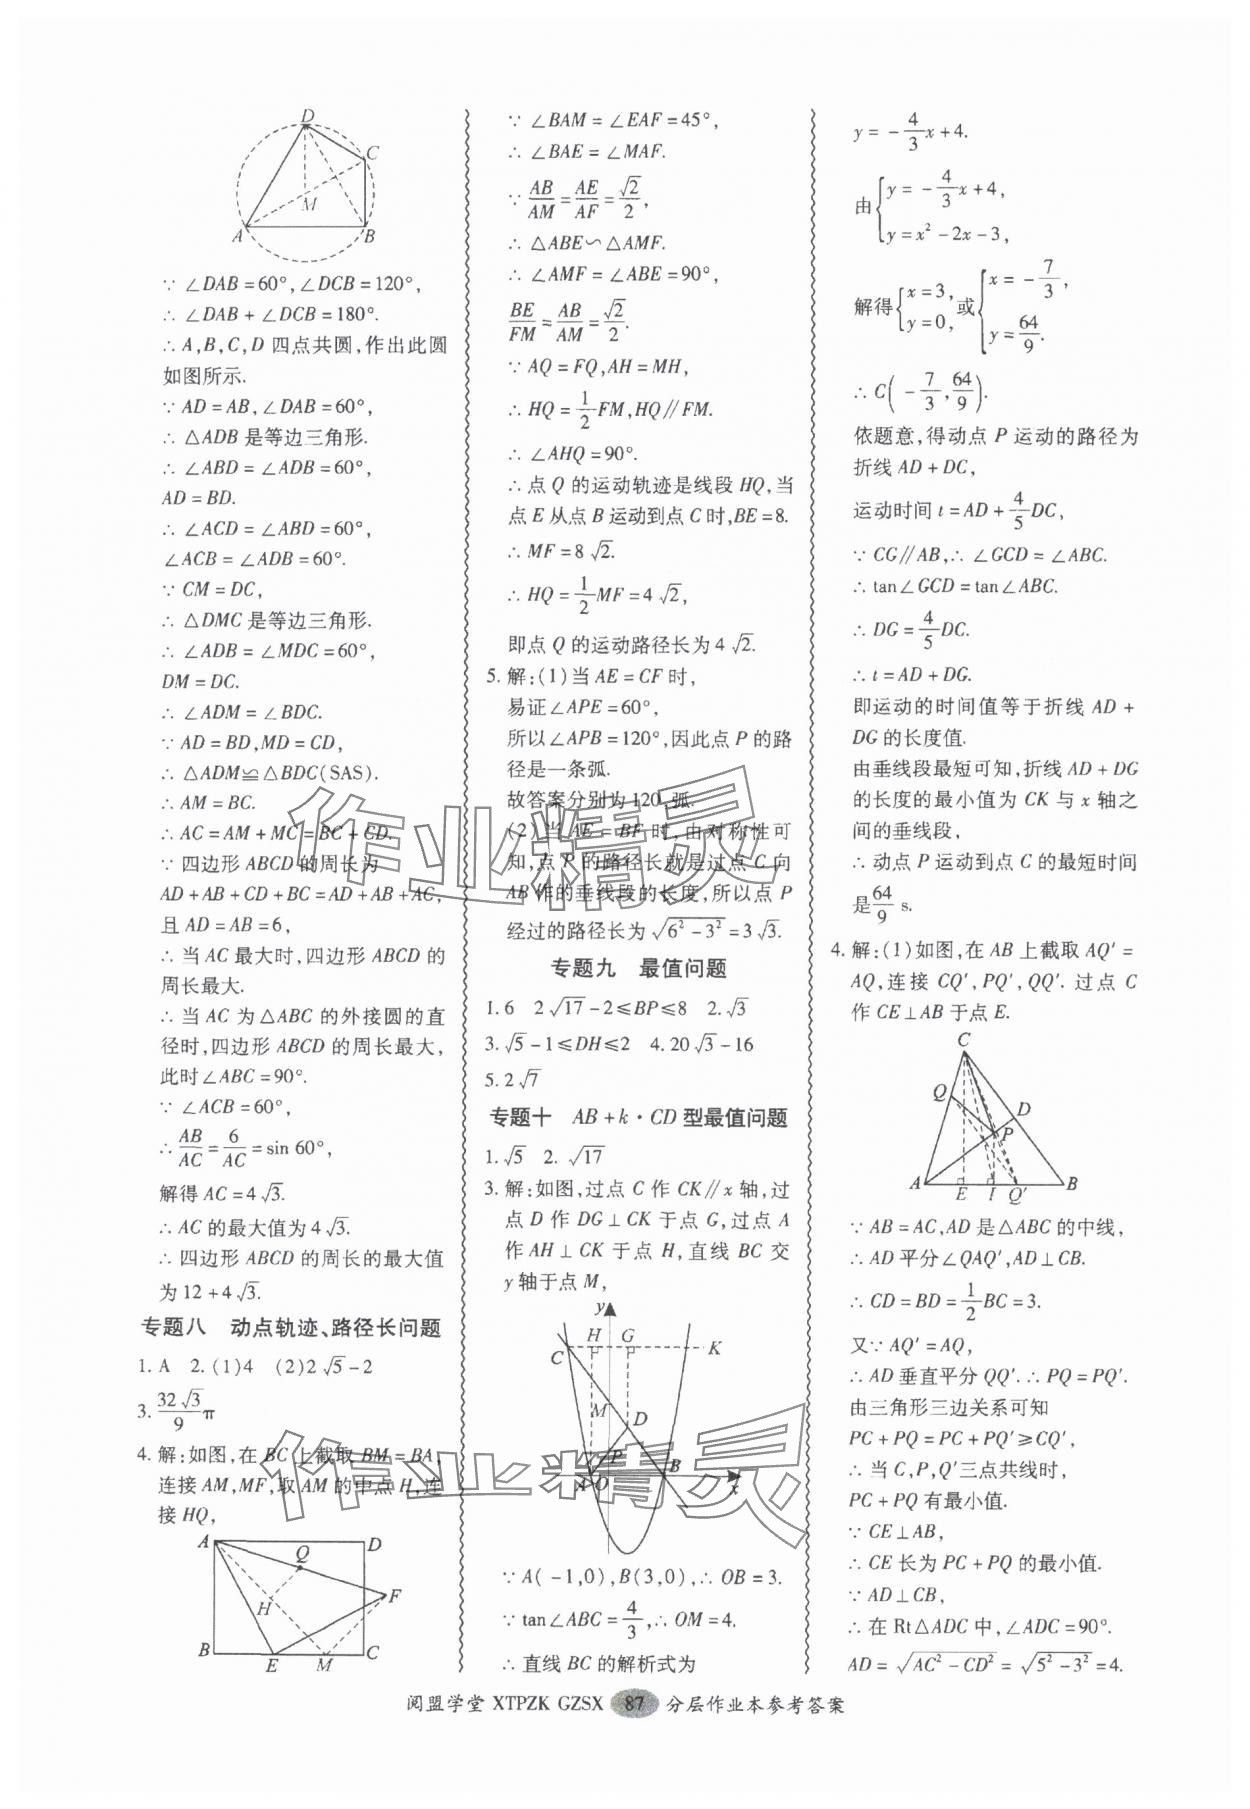 D
C
M
A
B
∵ ∠DAB = 60°, ∠DCB = 120°,
∴ ∠DAB + ∠DCB = 180°.
∴ A, B, C, D 四点共圆,作出此圆
如图所示.
∵ AD = AB, ∠DAB = 60°,
∴ △ADB 是等边三角形.
∴ ∠ABD = ∠ADB = 60°,
AD = BD.
∴ ∠ACD = ∠ABD = 60°,
∠ACB = ∠ADB = 60°.
∵ CM = DC,
∴ △DMC 是等边三角形.
∴ ∠ADB = ∠MDC = 60°,
DM = DC.
∴ ∠ADM = ∠BDC.
∵ AD = BD, MD = CD,
∴ △ADM≌△BDC(SAS).
∴ AM = BC.
∴ AC = AM + MC = BC + CD.
∵ 四边形 ABCD 的周长为
AD + AB + CD + BC = AD + AB + AC,
且 AD = AB = 6,
∴ 当 AC 最大时,四边形 ABCD 的
周长最大.
∴ 当 AC 为 △ABC 的外接圆的直
径时,四边形 ABCD 的周长最大,
此时∠ABC = 90°.
∵ ∠ACB = 60°,
∴ AB/AC = 6/AC = sin 60°,
解得 AC = 4√3.
∴ AC 的最大值为 4√3.
∴ 四边形 ABCD 的周长的最大值
为 12 + 4√3.
专题八 动点轨迹、路径长问题
1. A 2. (1)4 (2)2√5 - 2
3. 32√3/9 π
4. 解:如图,在 BC 上截取 BM = BA,
连接 AM, MF,取 AM 的中点 H,连
接 HQ,
A
D
Q
F
H
B
E
M
C
∵ ∠BAM = ∠EAF = 45°,
∴ ∠BAE = ∠MAF.
∵ AB/AM = AE/AF = √2/2,
∴ △ABE∽△AMF.
∴ ∠AMF = ∠ABE = 90°,
BE/FM = AB/AM = √2/2.
∵ AQ = FQ, AH = MH,
∴ HQ = 1/2 FM, HQ // FM.
∴ ∠AHQ = 90°.
∴ 点 Q 的运动轨迹是线段 HQ,当
点 E 从点 B 运动到点 C 时, BE = 8.
∴ MF = 8√2.
∴ HQ = 1/2 MF = 4√2,
即点 Q 的运动路径长为 4√2.
5. 解:(1)当 AE = CF 时,
易证∠APE = 60°,
所以∠APB = 120°,因此点 P 的路
径是一条弧.
故答案分别为 120,弧.
(2)当 AE = BF 时,由对称性可
知,点 P 的路径长就是过点 C 向
AB 作的垂线段的长度,所以点 P
经过的路径长为 √(6² - 3²) = 3√3.
专题九 最值问题
1. 6 2√17 - 2 ≤ BP ≤ 8 2. √3
3. √5 - 1 ≤ DH ≤ 2 4. 20√3 - 16
5. 2√7
专题十 AB + k · CD 型最值问题
1. √5 2. √17
3. 解:如图,过点 C 作 CK // x 轴,过
点 D 作 DG ⊥ CK 于点 G,过点 A
作 AH ⊥ CK 于点 H,直线 BC 交
y 轴于点 M,
y
H
G
K
C
M
D
P
A
O
B
x
∵ A( -1,0), B(3,0), ∴ OB = 3.
∵ tan∠ABC = 4/3, ∴ OM = 4.
∴ 直线 BC 的解析式为
y = - 4/3 x + 4.
由 { y = - 4/3 x + 4,
y = x² - 2x - 3,
解得 { x = 3, y = 0, 或 { x = - 7/3, y = 64/9.
∴ C( - 7/3, 64/9 ).
依题意,得动点 P 运动的路径为
折线 AD + DC,
运动时间 t = AD + 4/5 DC,
∵ CG // AB, ∴ ∠GCD = ∠ABC.
∴ tan∠GCD = tan∠ABC.
∴ DG = 4/5 DC.
∴ t = AD + DG.
即运动的时间值等于折线 AD +
DG 的长度值.
由垂线段最短可知,折线 AD + DG
的长度的最小值为 CK 与 x 轴之
间的垂线段,
∴ 动点 P 运动到点 C 的最短时间
是 64/9 s.
4. 解:(1)如图,在 AB 上截取 AQ' =
AQ,连接 CQ', PQ', QQ'. 过点 C
作 CE ⊥ AB 于点 E.
C
Q
D
P
A
E
I
Q'
B
∵ AB = AC, AD 是△ABC 的中线,
∴ AD 平分∠QAQ', AD ⊥ CB.
∴ CD = BD = 1/2 BC = 3.
又∵ AQ' = AQ,
∴ AD 垂直平分 QQ'. ∴ PQ = PQ'.
由三角形三边关系可知
PC + PQ = PC + PQ' ≥ CQ',
∴ 当 C, P, Q' 三点共线时,
PC + PQ 有最小值.
∵ CE ⊥ AB,
∴ CE 长为 PC + PQ 的最小值.
∵ AD ⊥ CB,
∴ 在 Rt△ADC 中, ∠ADC = 90°.
AD = √(AC² - CD²) = √(5² - 3²) = 4.
作业精灵
作业精灵
阅盟学堂 XTPZK GZSX 87 分层作业本参考答案